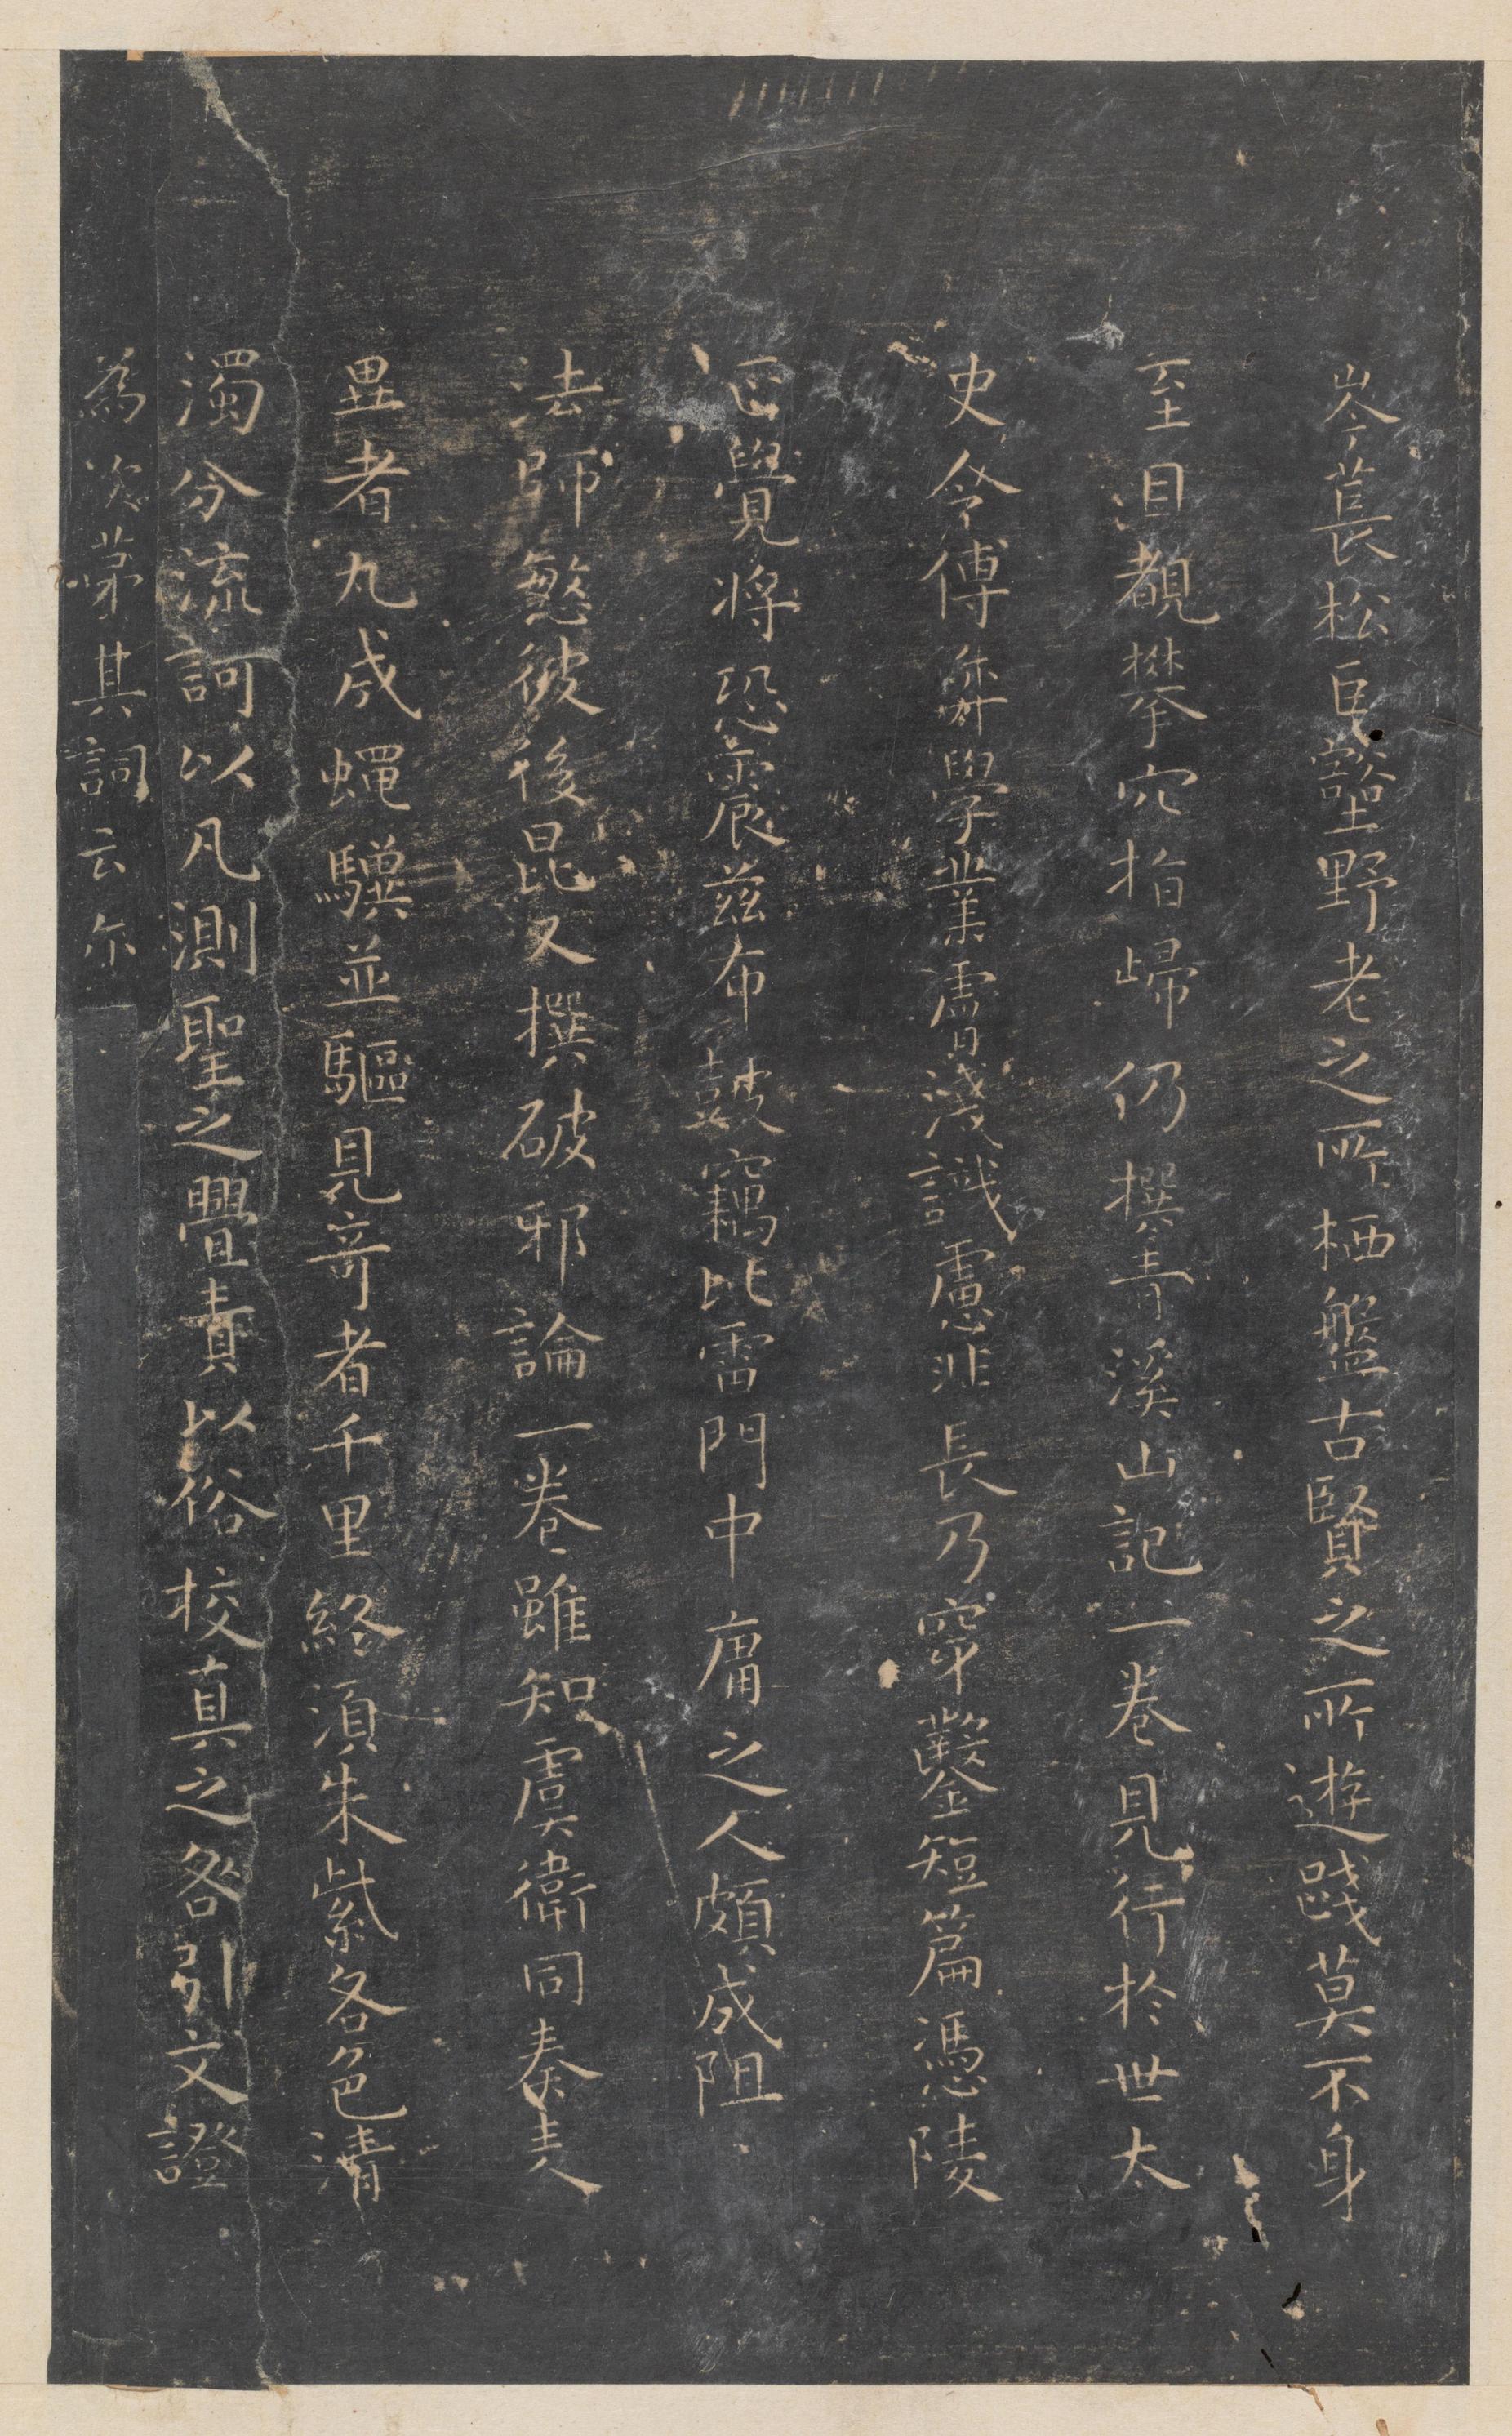 岑萇松巨壑野老之所栖盤古賢之所遊踐莫不身
至目覩攀穴指歸仍撰青溪山記一卷見行於世太
史令傅弈學業膚淺識慮非長乃穿鑿短篇憑陵
正覺將恐震茲布皷竊比雷門中庸之人頗成阻
法師愍彼後昆又撰破邪論一卷雖知虞衛同奏表
異者九成蠅驥並驅見奇者千里終須朱紫各色清
濁分流訶以凡測聖之舋責以俗校真之咎引文證
為次苐其詞云尔